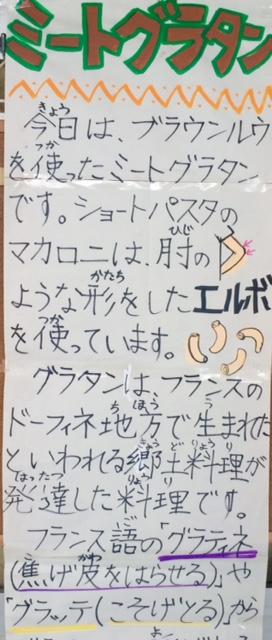 ミートグラタン
今日は、ブラウンルウ
を使ったミートグラタン
です。ショートパスタの
マカロニは、肘の
ような形をしたエルボ
を使っています。
グラタンは、フランスの
ドーフィネ地方で生まれた
といわれる郷土料理が
発達した料理です。
フランス語の「グラティネ
(焦げ皮をはらせる)」や
「グラッテ(こそげとる)」から